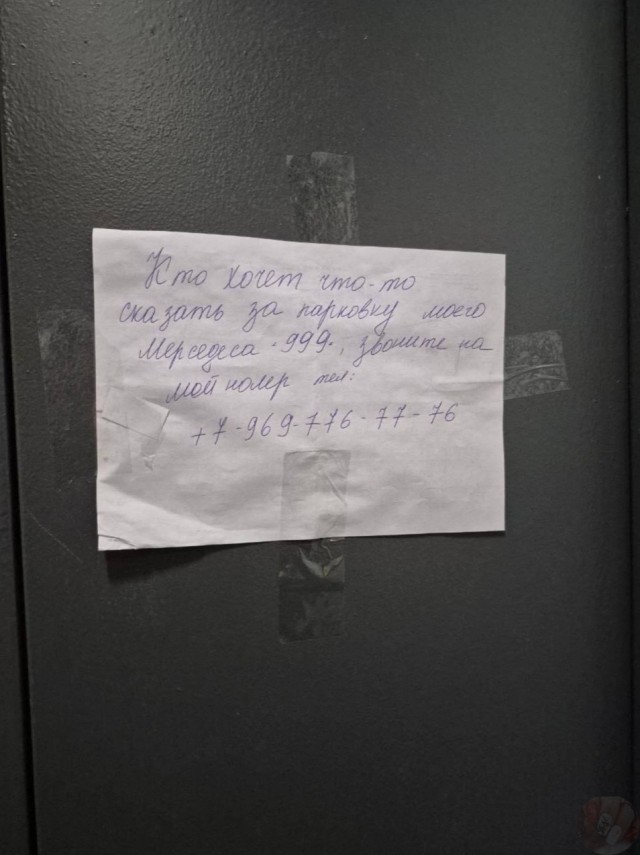 Кто хочет что-то
сказать за парковку моего
Мерседеса .999., звоните на
мой номер тел:
+7-969-776-77-76